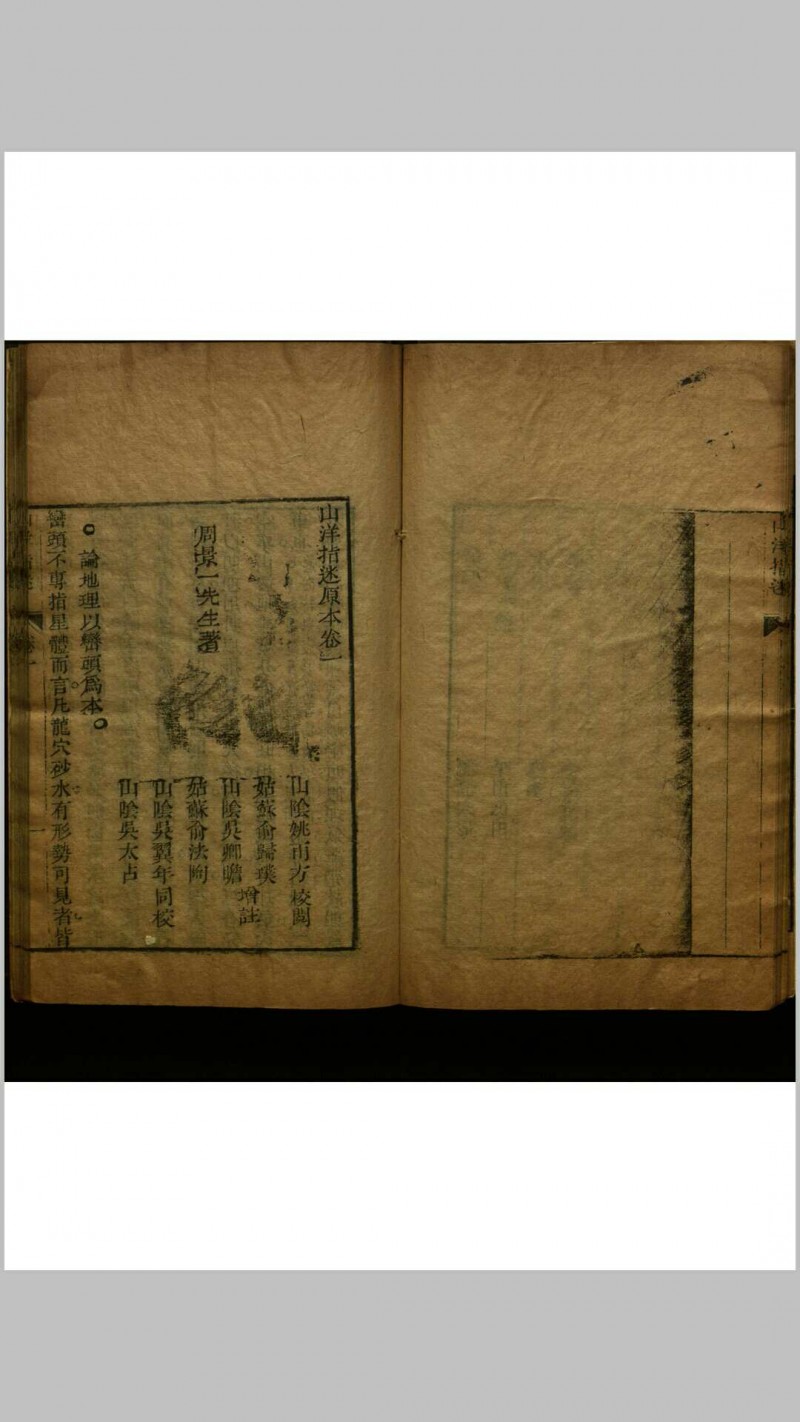 山洋指迷
山洋指迷原本卷一
周景一先生著
山陰姚雨方校閱
姑蘇俞歸璞
山陰吳卿瞻
增註
姑蘇俞法
山陰吳翼年
山陰吳太占
同校
論地理以巒頭為本
巒頭不專指星體而言凡龍穴砂水有形勢可見者皆
卷一
一